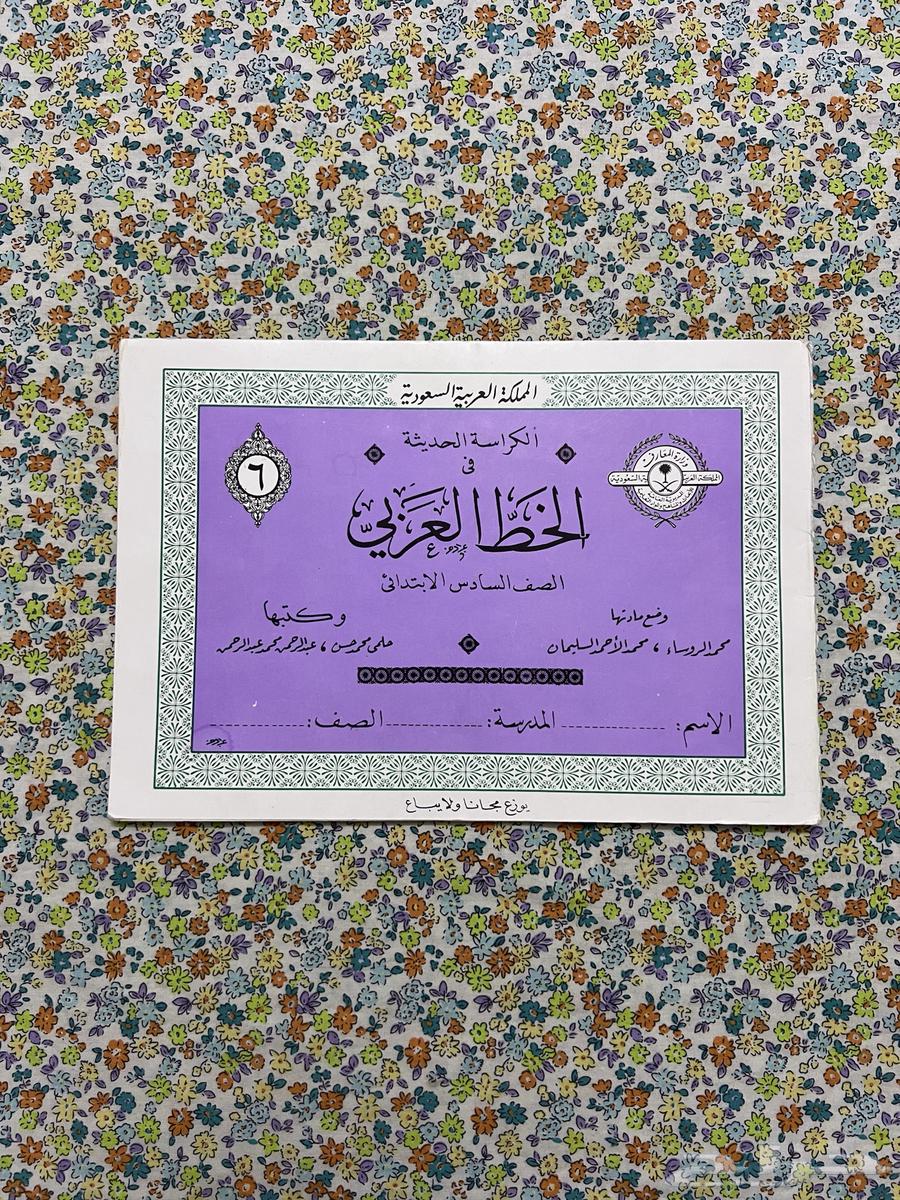 المملكة العربية السعودية
الكراسة الحديثة
في
الخط العربي
٦
وزارة المعارف
المملكة العربية السعودية
الصف السادس الابتدائي
وضع مادتها
محمد الروساء ، محمد الأحمد السليمان
وكتبها
حلمي محمد حسن ، عبدالرحمن محمد عبدالرحمن
الاسم: المدرسة: الصف:
يوزع مجانا ولا يباع